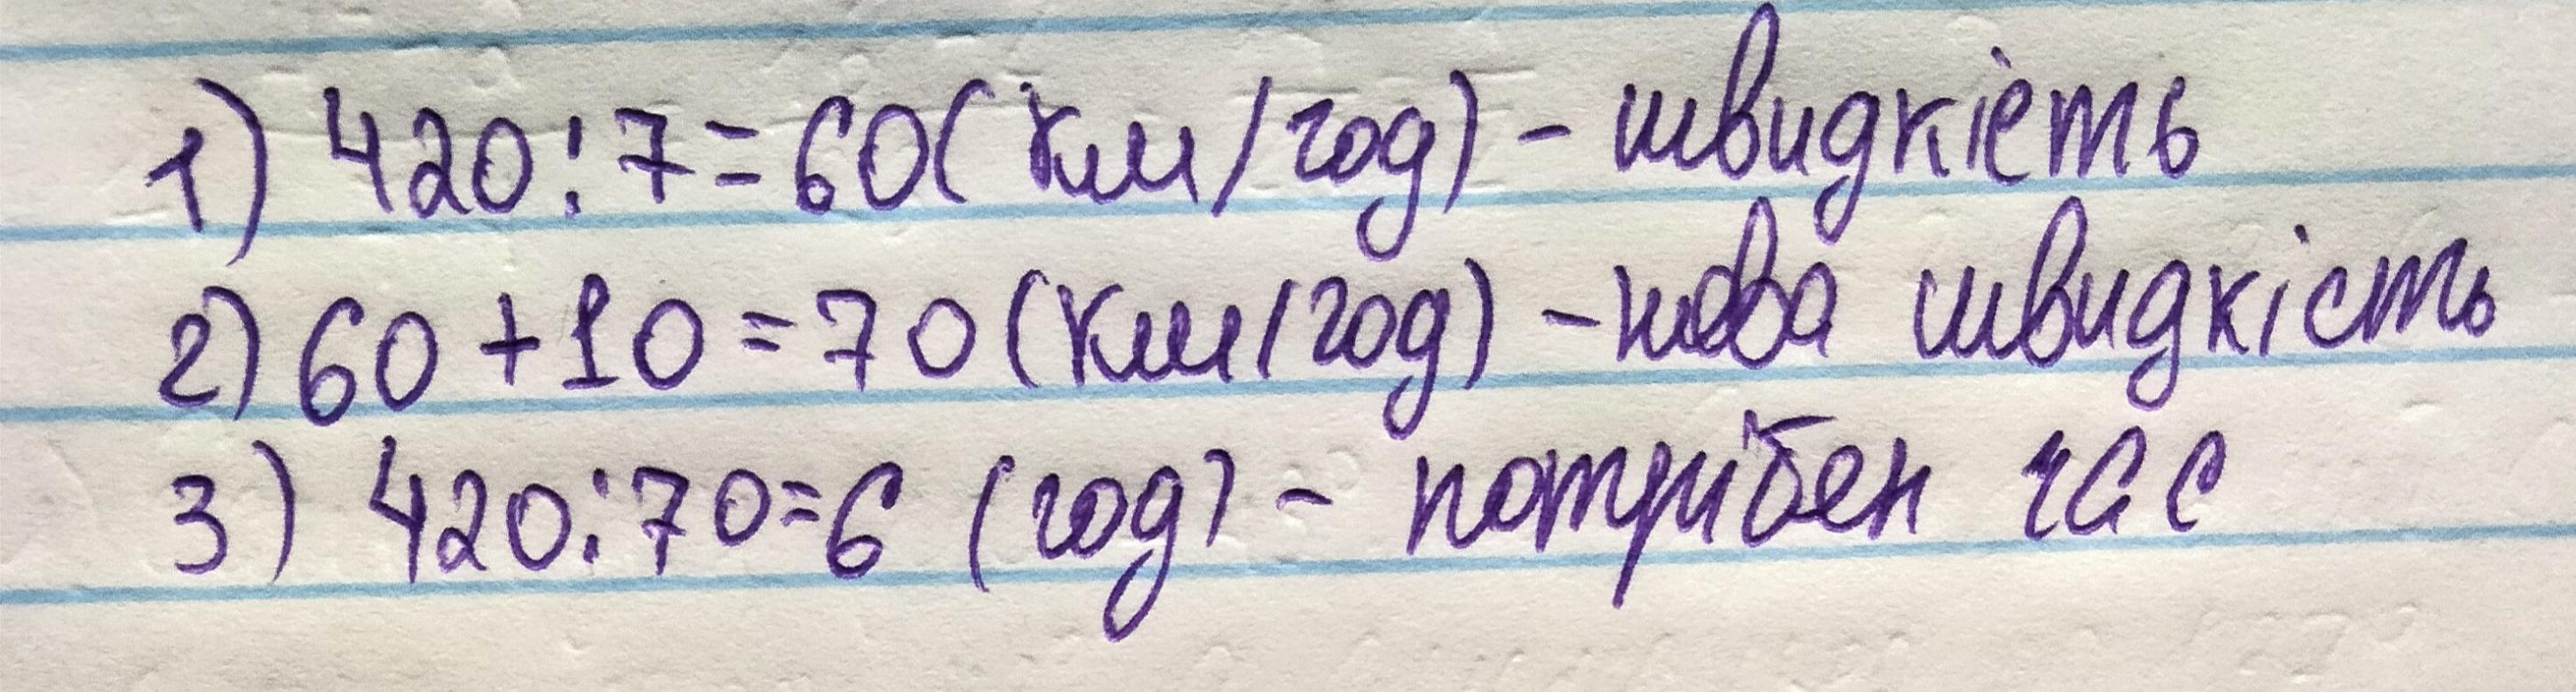 1) 420:7=60(км/год) - швидкість
2) 60+10=70(км/год) - нова швидкість
3) 420:70=6 (год) - потрібен час